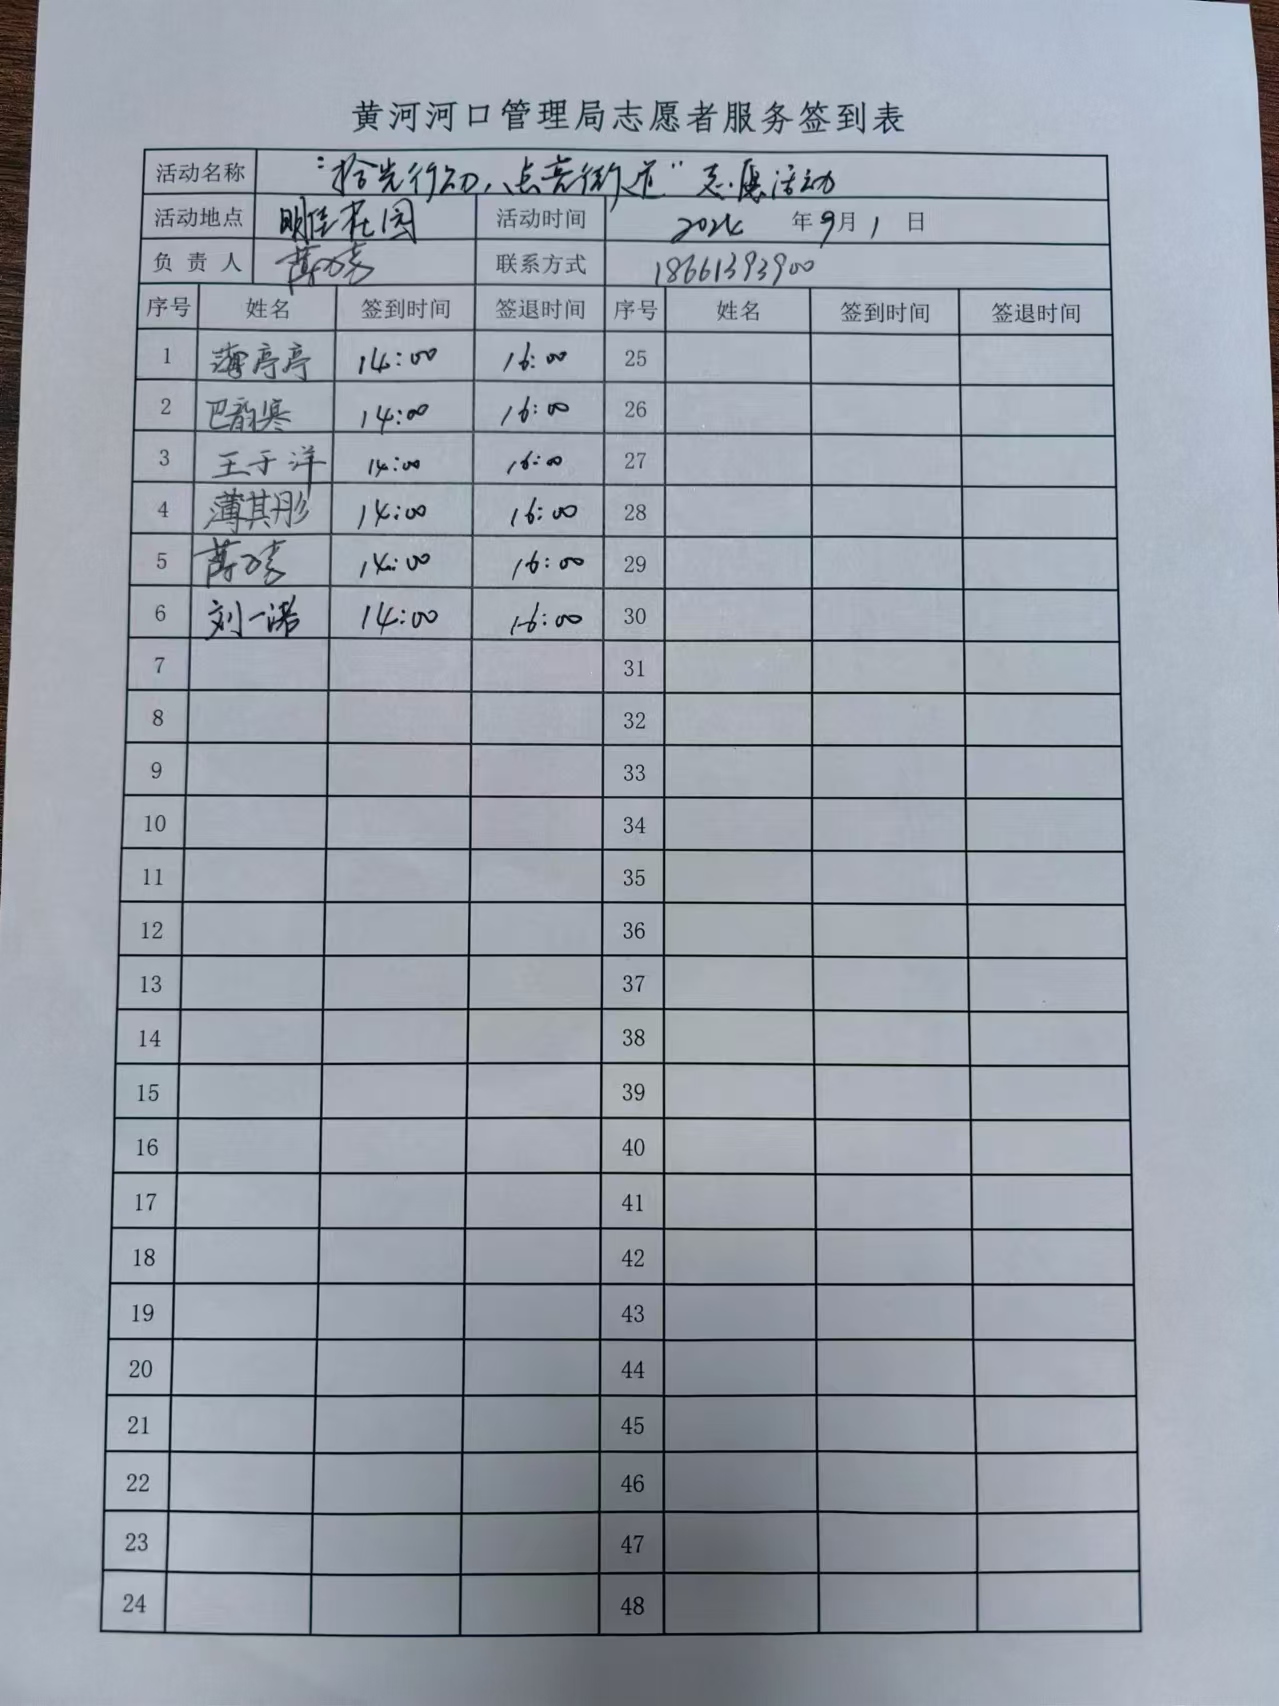 黄河河口管理局志愿者服务签到表
活动名称 “拾光行动，点亮街道”志愿活动
活动地点 明佳花园 活动时间 2024 年 9 月 1 日
负责人 联系方式 18661393900
序号 姓名 签到时间 签退时间 序号 姓名 签到时间 签退时间
1 薄亭亭 14:00 16:00 25
2 巴韵寒 14:00 16:00 26
3 王于洋 14:00 16:00 27
4 薄其彤 14:00 16:00 28
5 14:00 16:00 29
6 刘一诺 14:00 16:00 30
7 31
8 32
9 33
10 34
11 35
12 36
13 37
14 38
15 39
16 40
17 41
18 42
19 43
20 44
21 45
22 46
23 47
24 48